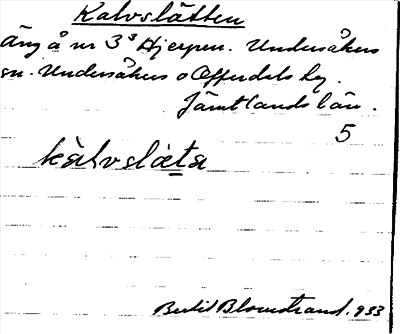 Kalvslåtten
Äng å nr 3³ Hjerpen. Undersåkers
sn. Undersåkers o Offerdals tg.
Jämtlands län.
5
kàlvslæta
Bertil Blomstrand. 933